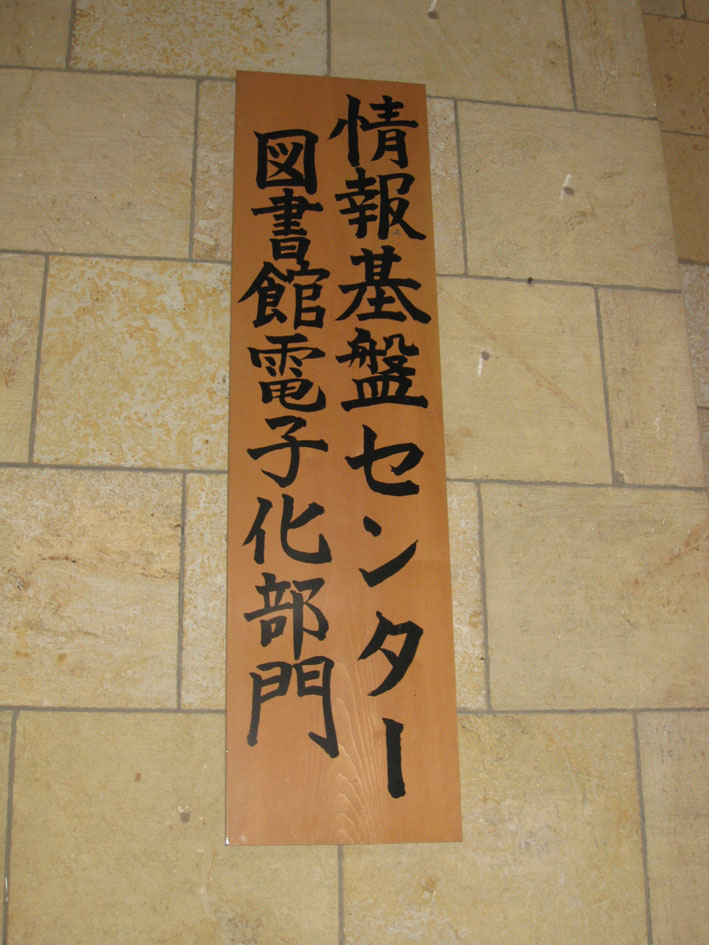 情報基盤センター
図書館電子化部門